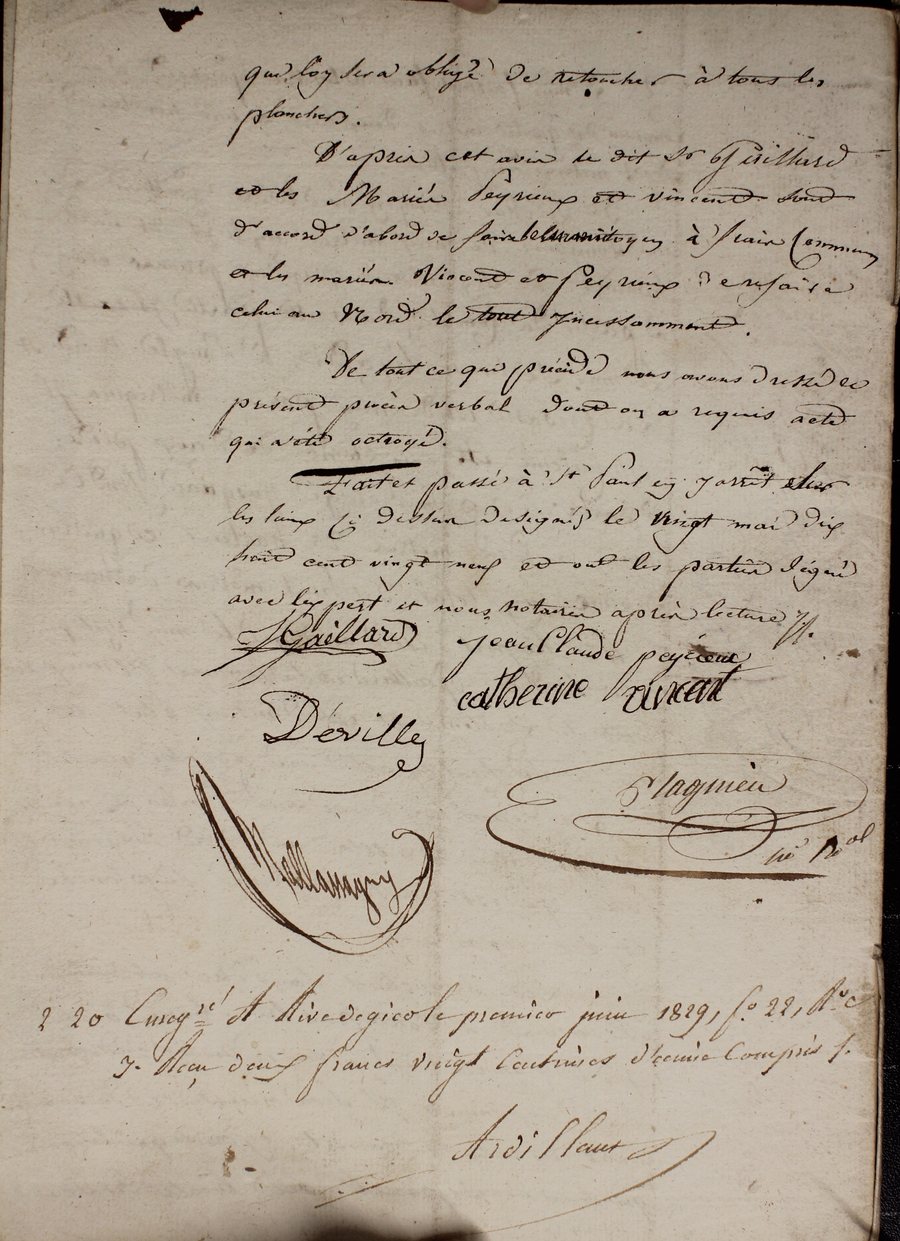 que l'on sera obligé de retoucher à tous les
planchers.
D'après cet avis le dit Sr Gaillard
et les Mariés Peyrieux et vincent sont
d'accord d'abord de faire le mur mitoyen à frais Communs
et les mariés Vincent et Peyrieux de refaire
celui au Nord le tout Incessamment.
De tout ce que précède nous avons dressé le
présent procès verbal dont on a requis acte
qui a été octroyé.
Fait et passé à St Paul en Jarrêt sur
les lieux ci dessus designés le vingt mai dix
huit cent vingt neuf et ont les parties signé
avec l'expert et nous notaires après lecture
Gaillard Jean Claude peyrieux
catherine vincent
Déville
Flagnieu
re Ral
Mallassagny
2 20 Enregré A Rivedegier le premier juin 1829, fo 22, Ro c
7. Reçu deux francs vingt Centimes d'ecime Compris /.
Ardillaut